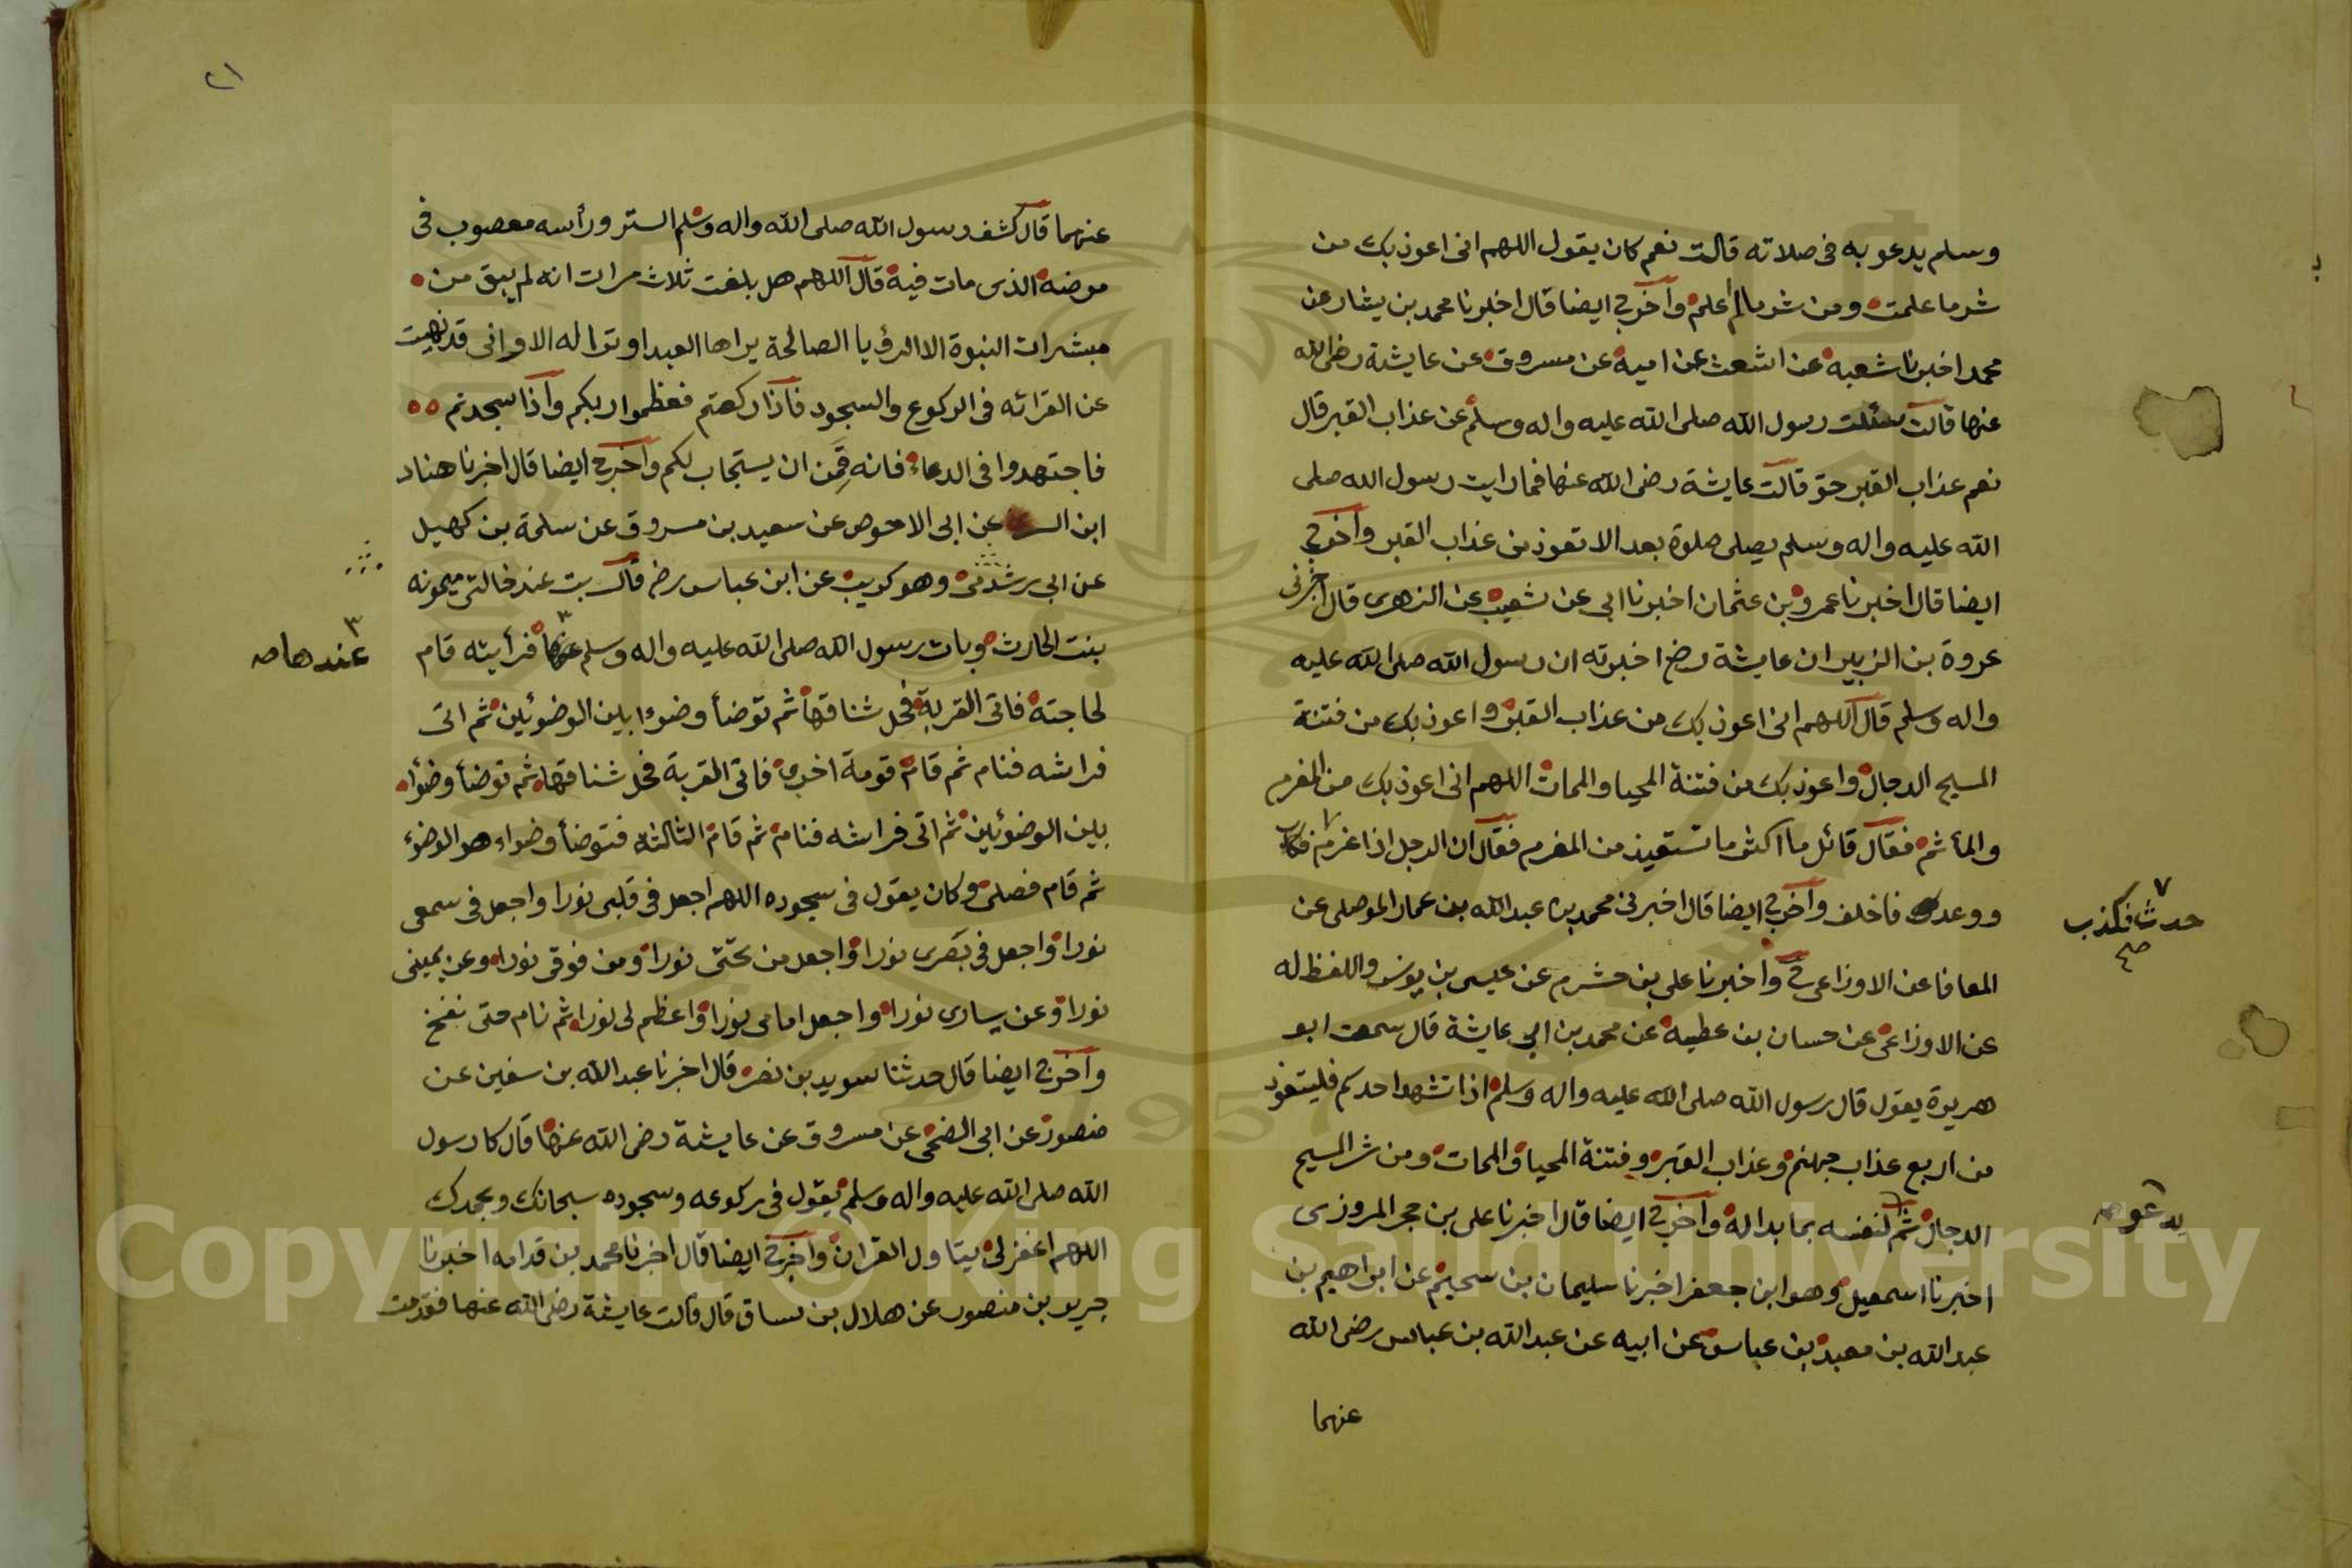 وسلم يدعو به فى صلاته قالت نعم كان يقول اللهم انى اعوذ بك من
شر ما علمت ومن شر مالم اعلم واخرج ايضا قال اخبرنا محمد بن بشار عن
محمد اخبرنا شعبه عن اشعث عن اميه عن مسروق عن عايشة رضى الله
عنها قالت سئلت رسول الله صلى الله عليه واله وسلم عن عذاب القبر قال
نعم عذاب القبر حق قالت عايشة رضى الله عنها فما رايت رسول الله صلى
الله عليه واله وسلم يصلى صلوة بعد الا تعوذ من عذاب القبر واخرج
ايضا قال اخبرنا عمرو بن عثمان اخبرنا ابى عن شعيب عن الزهرى قال اخبرنى
عروة بن الزبير ان عايشة رضى اخبرته ان رسول الله صلى الله عليه
واله وسلم قال اللهم انى اعوذ بك من عذاب القبر واعوذ بك من فتنة
المسيح الدجال واعوذ بك من فتنة المحيا والممات اللهم انى اعوذ بك من المغرم
والمأثم فقال قائل ما اكثر ما تستعيذ من المغرم فقال ان الرجل اذا غرم
ووعد فاخلف واخرج ايضا قال اخبرنى محمد بن عبدالله بن عمار الموصلى عن
حدث فكذب صح
المعافا عن الاوزاعى ح واخبرنا على بن خشرم عن عيسى بن يونس واللفظ له
عن الاوزاعى عن حسان بن عطيه عن محمد بن ابى عايشة قال سمعت ابو
هريرة يقول قال رسول الله صلى الله عليه واله وسلم اذا تشهد احدكم فليتعوذ
من اربع عذاب جهنم وعذاب القبر وفتنة المحيا والممات ومن شر المسيح
الدجال ثم لنفسه بما بدا له واخرج ايضا قال اخبرنا على بن حجر المروزى
يدعو صح
اخبرنا اسمعيل وهو ابن جعفر اخبرنا سليمان بن سحيم عن ابراهيم بن
عبد الله بن معبد بن عباس عن ابيه عن عبد الله بن عباس رضى الله
عنهما
٢١
عنهما قال كشف رسول الله صلى الله واله وسلم الستر ورأسه معصوب فى
مرضه الذى مات فيه قال اللهم هل بلغت ثلاث مرات انه لم يبق من
مبشرات النبوة الا الرؤيا الصالحة يراها العبد او ترا له الا وانى قد نهيت
عن القرائه فى الركوع والسجود فاذا ركعتم فعظموا ربكم واذا سجدتم
فاجتهدوا فى الدعاء فانه قمن ان يستجاب لكم واخرج ايضا قال اخبرنا هناد
ابن عن ابى الاحوص عن سعيد بن مسروق عن سلمة بن كهيل
عن ابى رشدين وهو كريب عن ابن عباس رض قال بت عند خالتى ميمونه
بنت الحارث وبات رسول الله صلى الله عليه واله وسلم عنها فرأيته قام
٣ عندها صح
لحاجته فاتى القربة فحل شناقها ثم توضأ وضوءا بين الوضوئين ثم اتى
فراشه فنام ثم قام قومة اخرى فاتى القربة فحل شناقها ثم توضأ وضوأ
بين الوضوئين ثم اتى فراشه فنام ثم قام الثالثة فتوضأ وضواء هو الوضوء
ثم قام فصلى وكان يقول فى سجوده اللهم اجعل فى قلبى نورا واجعل فى سمعى
نورا واجعل فى بصرى نورا واجعل من تحتى نورا ومن فوقى نورا وعن يمينى
نورا وعن يسارى نورا واجعل امامى نورا واعظم لى نورا ثم نام حتى نفخ
واخرج ايضا قال حدثنا سويد بن نصر قال اخبرنا عبد الله بن سفين عن
منصور عن ابى الضحى عن مسروق عن عايشة رضى الله عنها قال كا رسول
الله صلى الله عليه واله وسلم يقول فى ركوعه وسجوده سبحانك وبحمدك
اللهم اغفر لى يتاول القران واخرج ايضا قال اخبرنا محمد بن قدامه اخبرنا
جرير بن منصور عن هلال بن يساق قال قالت عايشة رضى الله عنها فقدمت
Copyright © King Saud University
1957